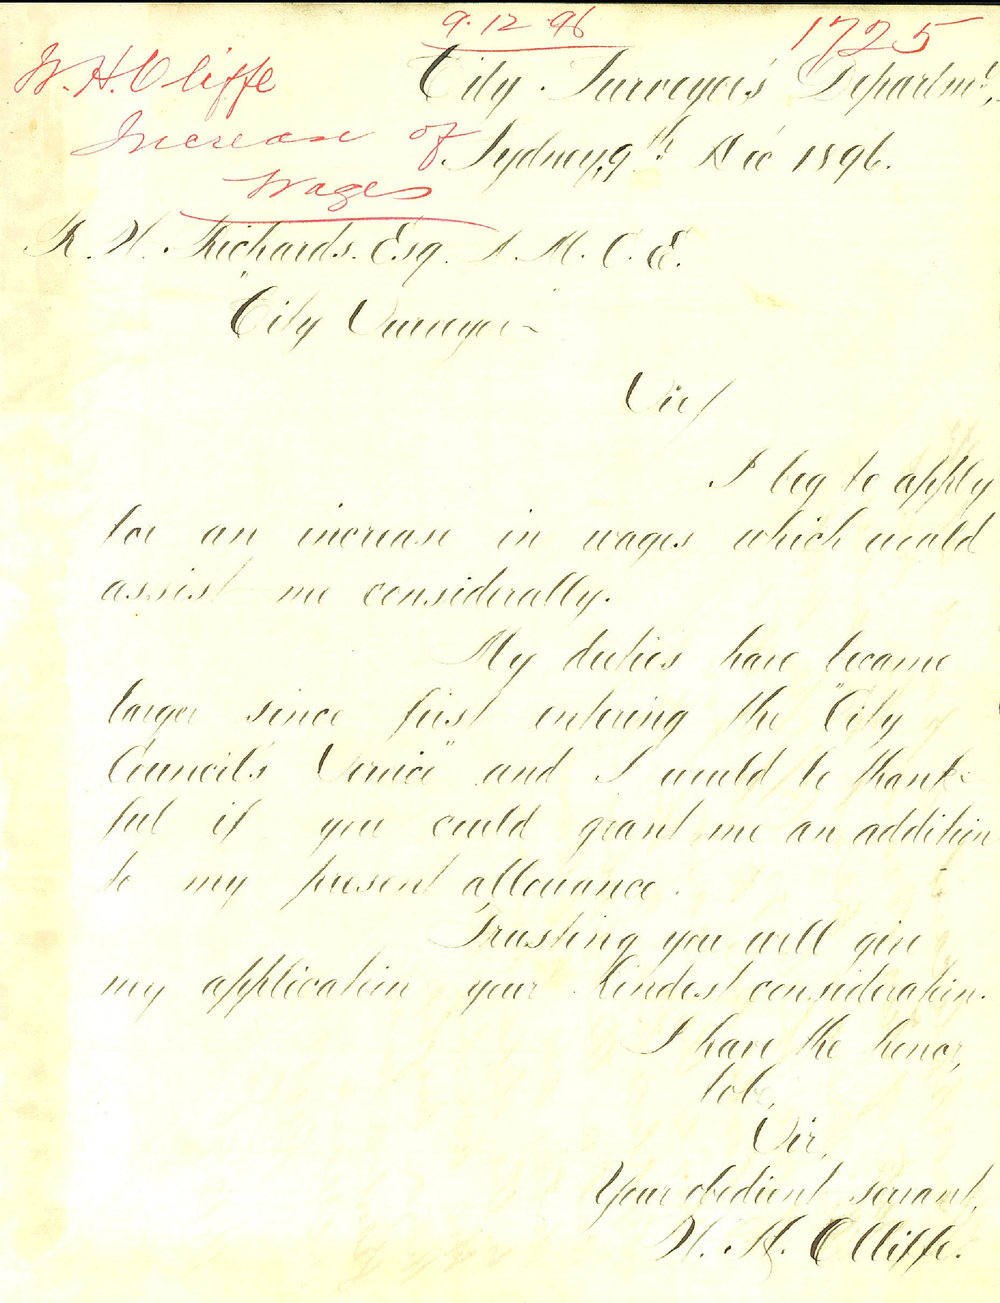 9.12.96
1725
W.H. Olliffe
Increase of
Wages
City Surveyor's Departmt,
Sydney, 9th Dec 1896.
R. W. Richards. Esq. A. M. C. E.
"City Surveyor"
Sir/
I beg to apply
for an increase in wages which would
assist me considerally.
My duties have became
larger since first entering the "City
Council's Service" and I would be thank-
ful if you could grant me an addition
to my present allowance.
Trusting you will give
my application your kindest consideration.
I have the honor,
to be,
Sir,
Your obedient servant,
W. H. Olliffe.